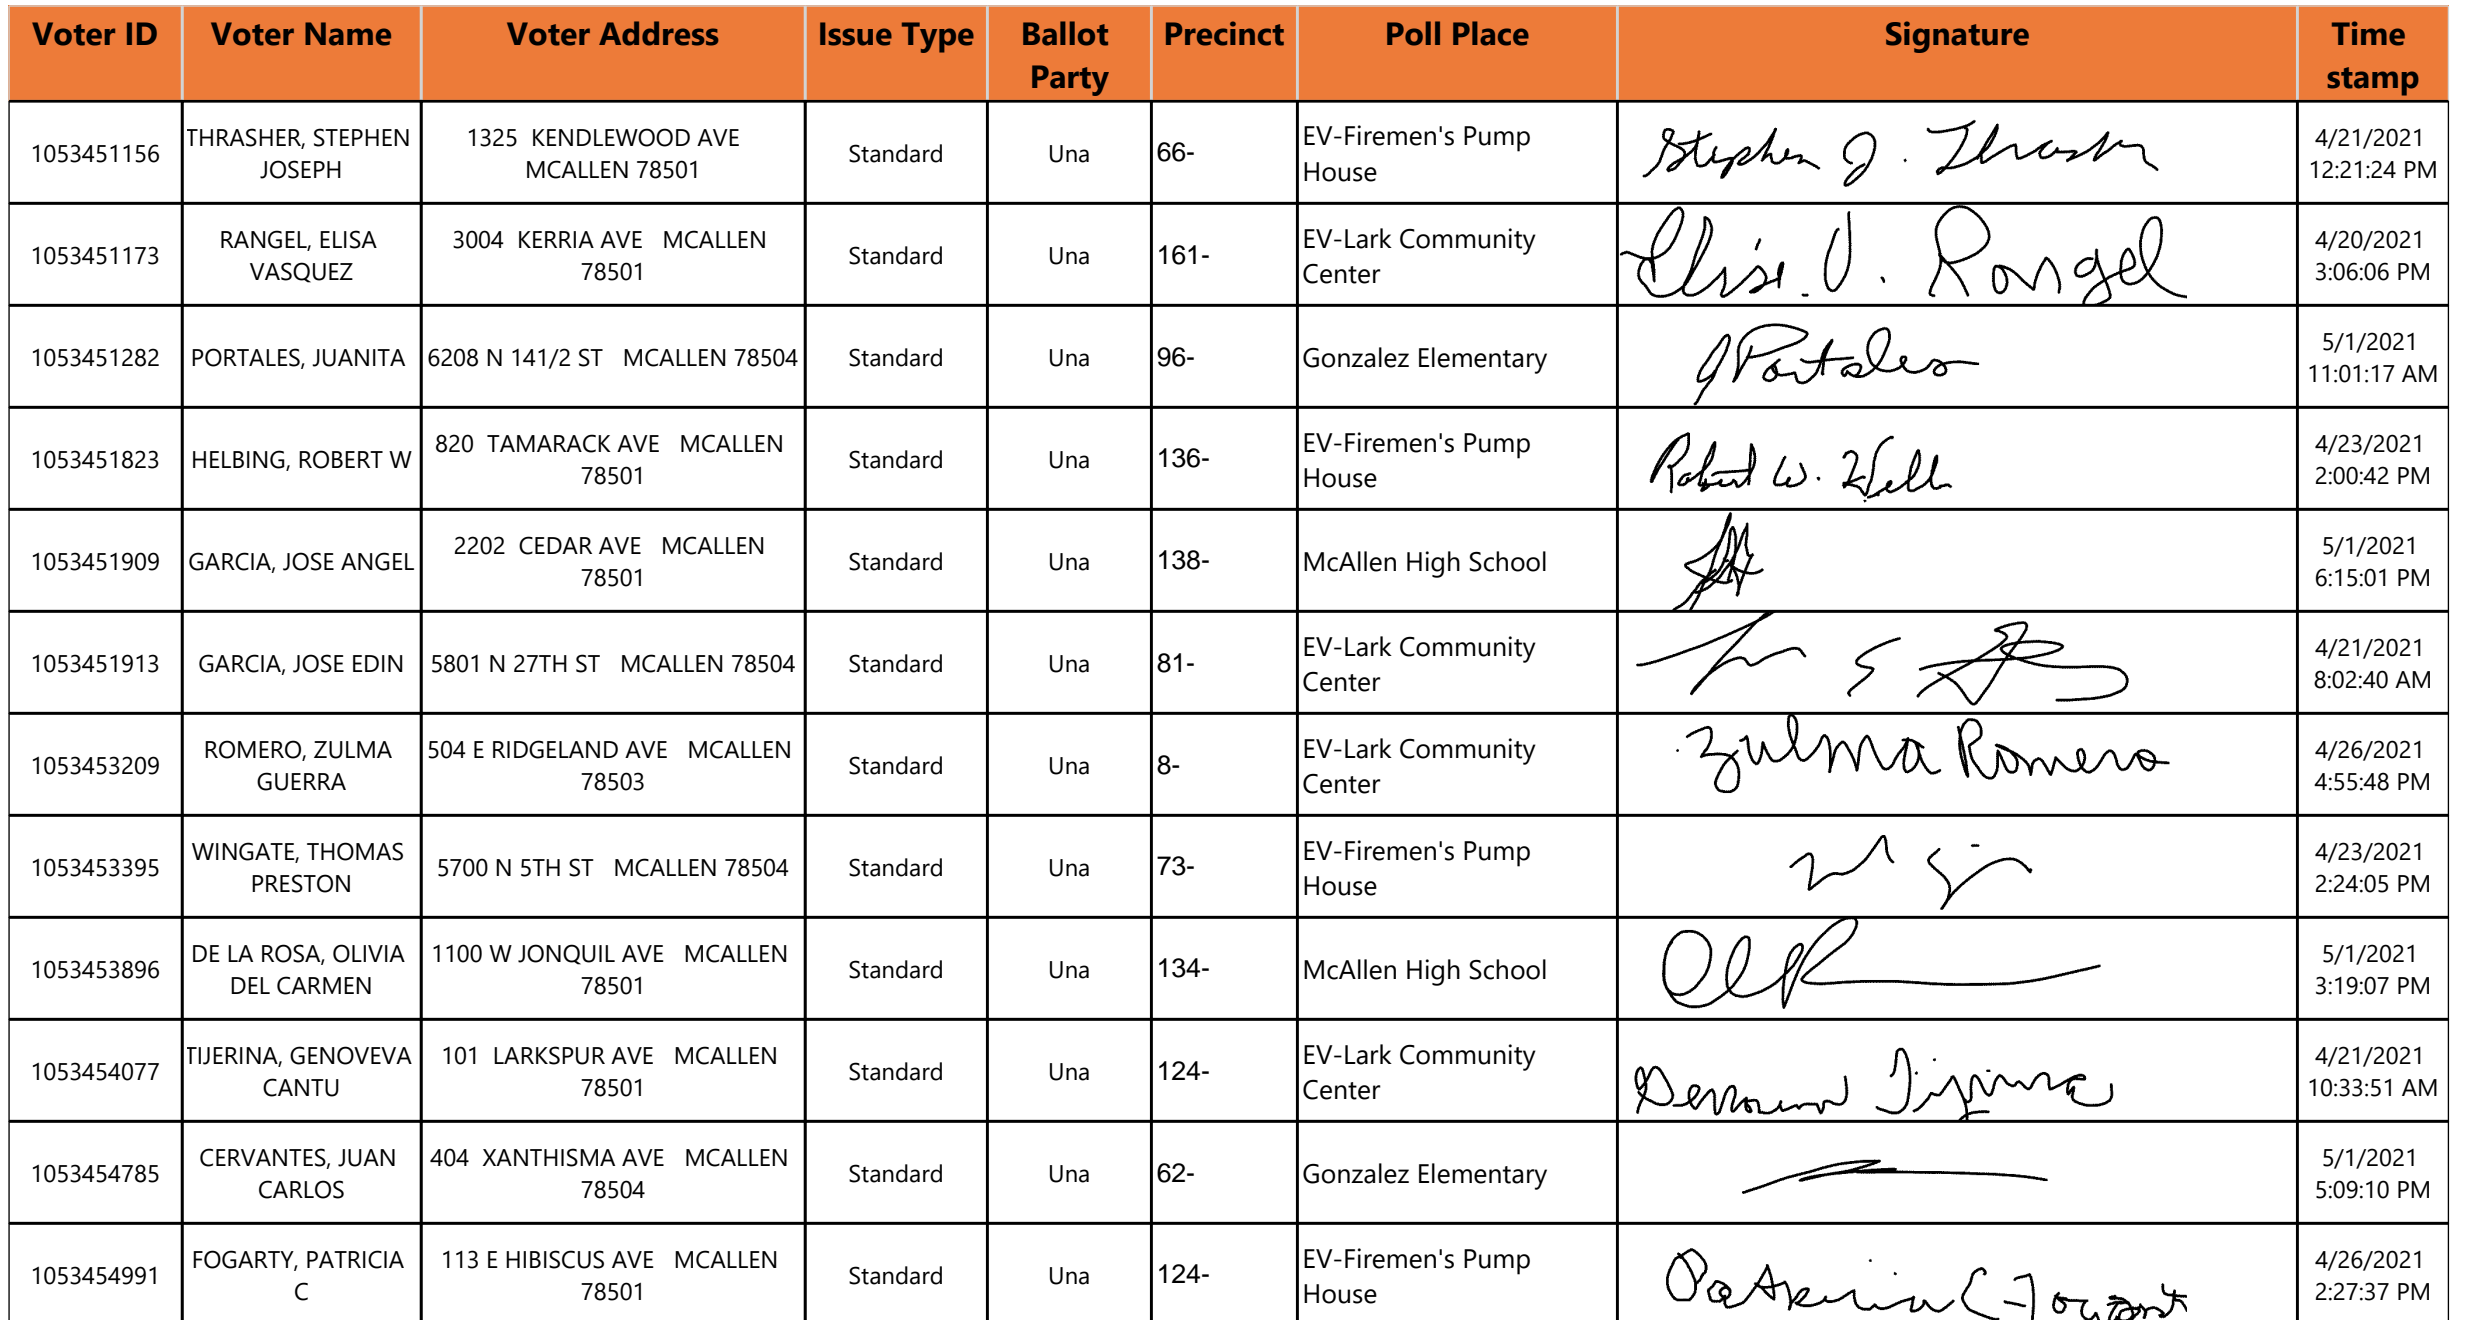 Voter ID Voter Name Voter Address Issue Type Ballot Party Precinct Poll Place Signature Time stamp
1053451156 THRASHER, STEPHEN JOSEPH 1325 KENDLEWOOD AVE MCALLEN 78501 Standard Una 66- EV-Firemen's Pump House Stephen J. Thrasher 4/21/2021 12:21:24 PM
1053451173 RANGEL, ELISA VASQUEZ 3004 KERRIA AVE MCALLEN 78501 Standard Una 161- EV-Lark Community Center Elisa V. Rangel 4/20/2021 3:06:06 PM
1053451282 PORTALES, JUANITA 6208 N 141/2 ST MCALLEN 78504 Standard Una 96- Gonzalez Elementary J Portales 5/1/2021 11:01:17 AM
1053451823 HELBING, ROBERT W 820 TAMARACK AVE MCALLEN 78501 Standard Una 136- EV-Firemen's Pump House Robert W. 4/23/2021 2:00:42 PM
1053451909 GARCIA, JOSE ANGEL 2202 CEDAR AVE MCALLEN 78501 Standard Una 138- McAllen High School 5/1/2021 6:15:01 PM
1053451913 GARCIA, JOSE EDIN 5801 N 27TH ST MCALLEN 78504 Standard Una 81- EV-Lark Community Center 4/21/2021 8:02:40 AM
1053453209 ROMERO, ZULMA GUERRA 504 E RIDGELAND AVE MCALLEN 78503 Standard Una 8- EV-Lark Community Center Zulma Romero 4/26/2021 4:55:48 PM
1053453395 WINGATE, THOMAS PRESTON 5700 N 5TH ST MCALLEN 78504 Standard Una 73- EV-Firemen's Pump House 4/23/2021 2:24:05 PM
1053453896 DE LA ROSA, OLIVIA DEL CARMEN 1100 W JONQUIL AVE MCALLEN 78501 Standard Una 134- McAllen High School 5/1/2021 3:19:07 PM
1053454077 TIJERINA, GENOVEVA CANTU 101 LARKSPUR AVE MCALLEN 78501 Standard Una 124- EV-Lark Community Center Genoveva Tijerina 4/21/2021 10:33:51 AM
1053454785 CERVANTES, JUAN CARLOS 404 XANTHISMA AVE MCALLEN 78504 Standard Una 62- Gonzalez Elementary 5/1/2021 5:09:10 PM
1053454991 FOGARTY, PATRICIA C 113 E HIBISCUS AVE MCALLEN 78501 Standard Una 124- EV-Firemen's Pump House Patricia C Fogarty 4/26/2021 2:27:37 PM